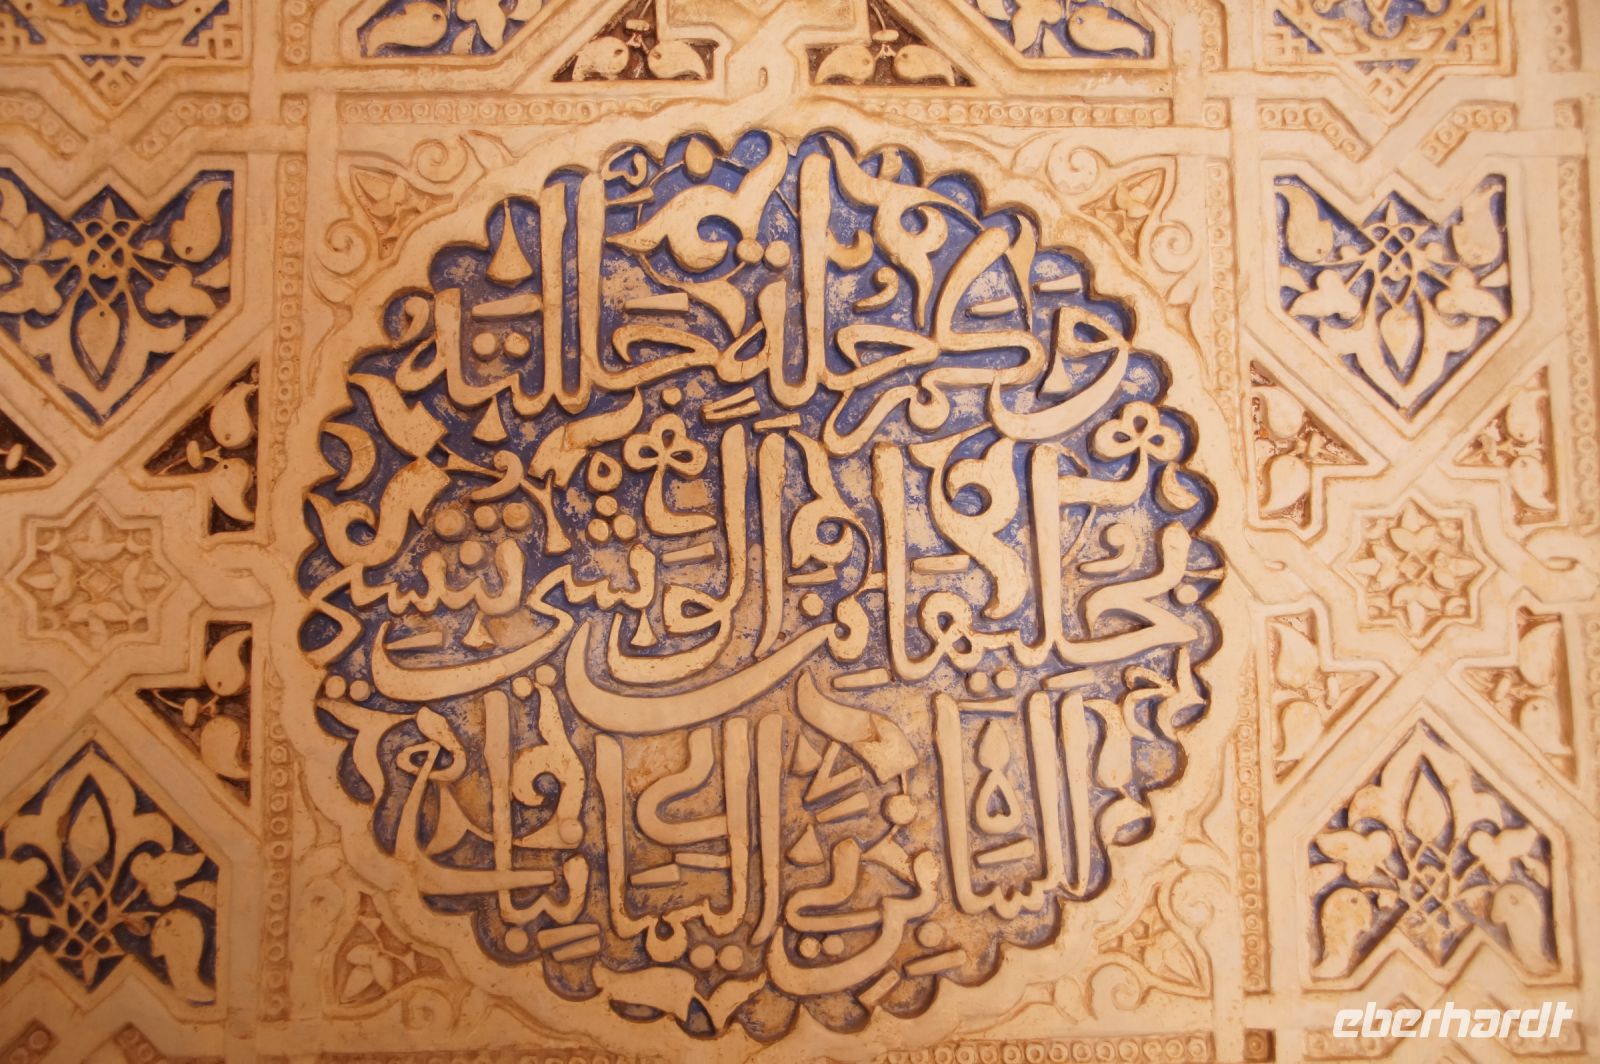 وَكَمْ حُلَّةٍ جَلَّلْتَهُ
بِحُلِيِّهَا مِنَ الْوَشْيِ تُنْسِي
السَّابِرِيَّ الْيَمَانِيَا
eberhardt